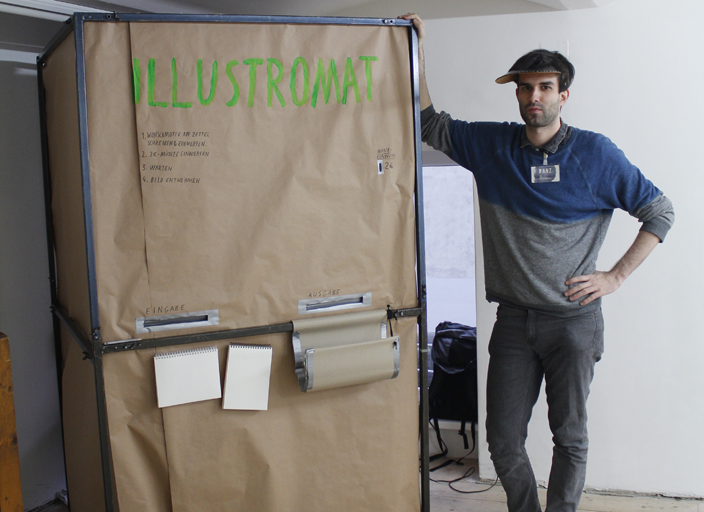 ILLUSTROMAT
1. WUNSCHMOTIV AUF ZETTEL
SCHREIBEN & EINWERFEN.
2. 2€-MÜNZE EINWERFEN
3. WARTEN
4. BILD ENTNEHMEN
2€
EINGABE
AUSGABE